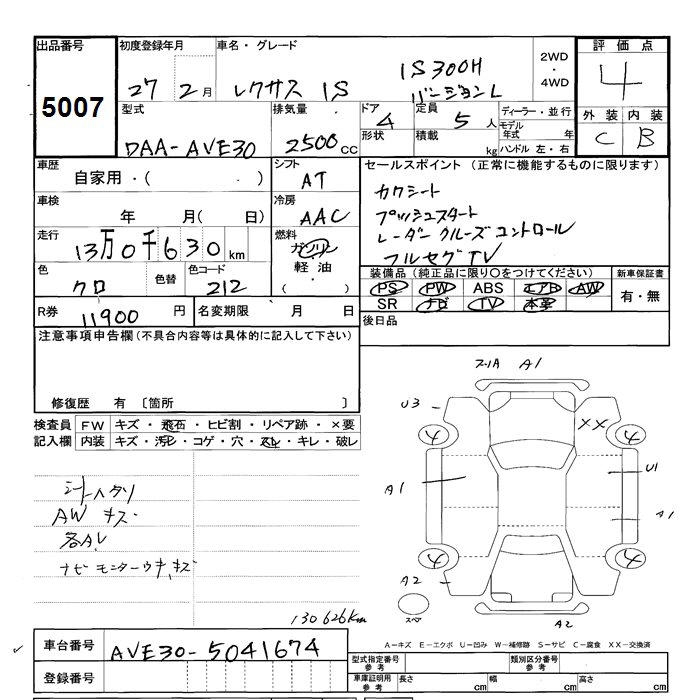 出品番号
5007
初度登録年月
27 2月
車名・グレード
レクサス IS
IS300H
バージョンL
2WD
・
4WD
評価点
4
外装 内装
C B
型式
DAA-AVE30
排気量
2500cc
ドア 4
形状
定員 5人
積載 kg
ディーラー・並行
モデル年式 年
ハンドル 左・右
車歴
自家用・( ・ )
シフト
AT
車検
年 月( 日)
冷房
AAC
走行
13万0千630km
燃料
ガソリン
軽油
( ・ )
色
クロ
色替
色コード
212
R券
11900円
名変期限 月 日
セールスポイント(正常に機能するものに限ります)
カワシート
プッシュスタート
レーダークルーズコントロール
フルセグTV
装備品(純正品に限り〇をつけてください)
PS PW ABS エアB AW
SR ナビ TV 本革
新車保証書
有・無
後日品
注意事項申告欄(不具合内容等は具体的に記入して下さい)
修復歴 有 〔箇所 〕
検査員 FW キズ・飛石・ヒビ割・リペア跡・×要
記入欄 内装 キズ・汚レ・コゲ・穴・スレ・キレ・破レ
シートヘタリ
AW キズ
ナビモニターウキ、キズ
130626km
A1
U3
XX
4 4
A1
U1
A1
4 4
A2
スペア
A2
A-キズ E-エクボ U-凹み W-補修跡 S-サビ C-腐食 XX-交換済
車台番号
AVE30-5041674
登録番号
型式指定番号
参考
類別区分番号
参考
車庫証明用
参考
長さ cm 幅 cm 高さ cm